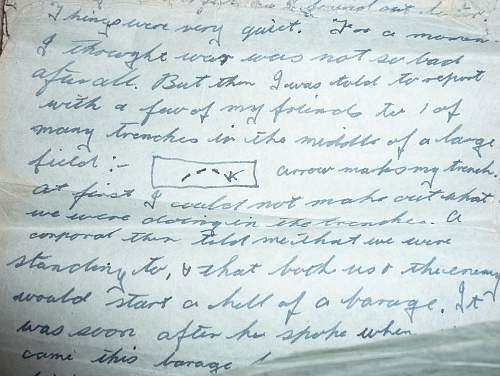 as I found out later.
Things were very quiet. For a moment
I thought war was not so bad
after all. But then I was told to report
with a few of my friends to 1 of
many trenches in the middle of a large
field:- arrow marks my trench.
At first I could not make out what
we were doing in the trenches. A
corporal then told me that we were
standing to, & that both us & the enemy
would start a hell of a barage. It
was soon after he spoke when
came this barage